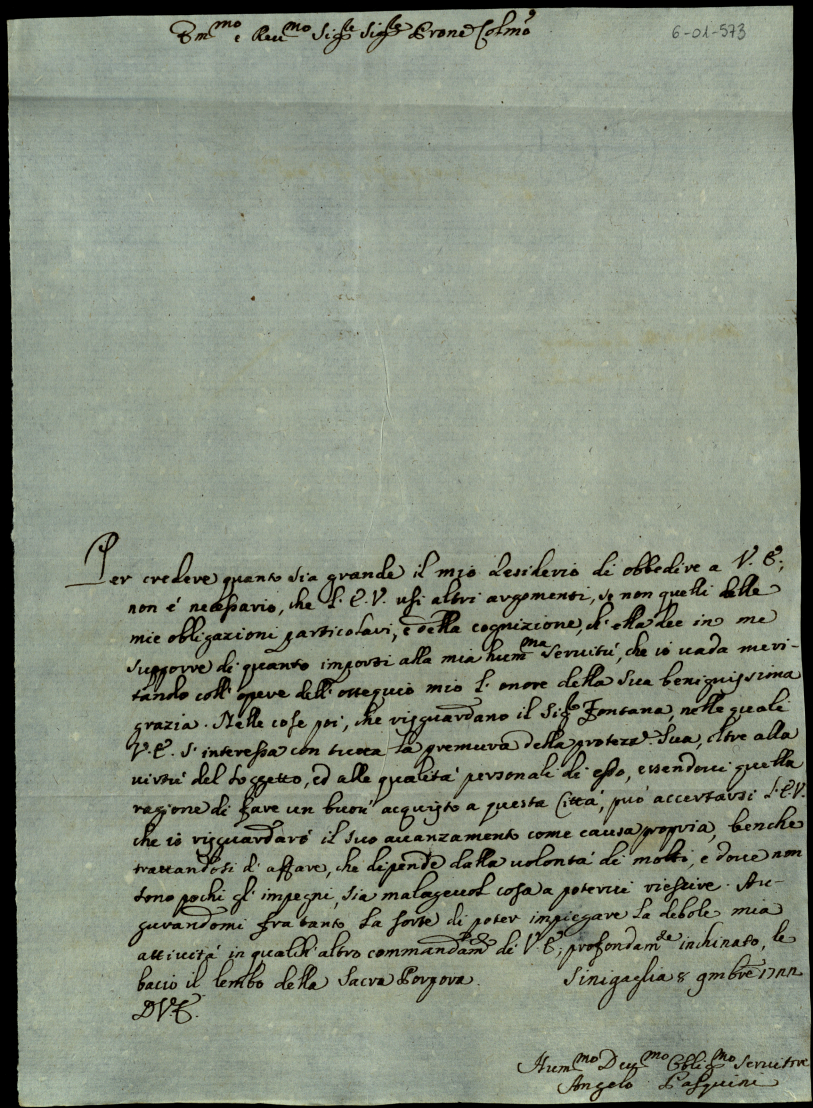 Em.mo e Reu.mo Sig.re Sig.re Prone Colmo
6-01-573
Per credere quanto sia grande il mio desiderio di obbedire a V. E.,
non é necessario, che l'E.V. usi altri argomenti, se non quelli delle
mie obligazioni particolari, e della cognizione, ch'ella dee in me
supporre di quanto importi alla mia hum.ma Servitú, che io uada meri-
tando coll'opere dell'ossequio mio l'onore della Sua benignissima
grazia. Nelle cose poi, che risguardano il Sig.r Fontana, nelle quali
V.E. s'interessa con tutta la premura della protezz.e Sua, oltre alla
uirtú del soggetto, ed alle qualitá personali di esso, essendoui quella
ragione di fare un buon' acquisto a questa Cittá, puó accertarsi l'E.V.
che io risguardaró il suo auanzamento come causa propria, benche
trattandosi d'affare, che dipende dalla uolontá di molti, e doue non
sono pochi gl'impegni, sia malageuol cosa a poterui riescire. Au-
gurandomi fra tanto la sorte di poter impiegare la debole mia
attiuitá in qualch'altro commandam.to di V.E., profondam.te inchinato, le
bacio il lembo della Sacra Porpora. Sinigaglia 8 9mbre 1722
D.V.E.
Hum.mo Deu.mo Oblig.mo Seruitore
Angelo Pasquini